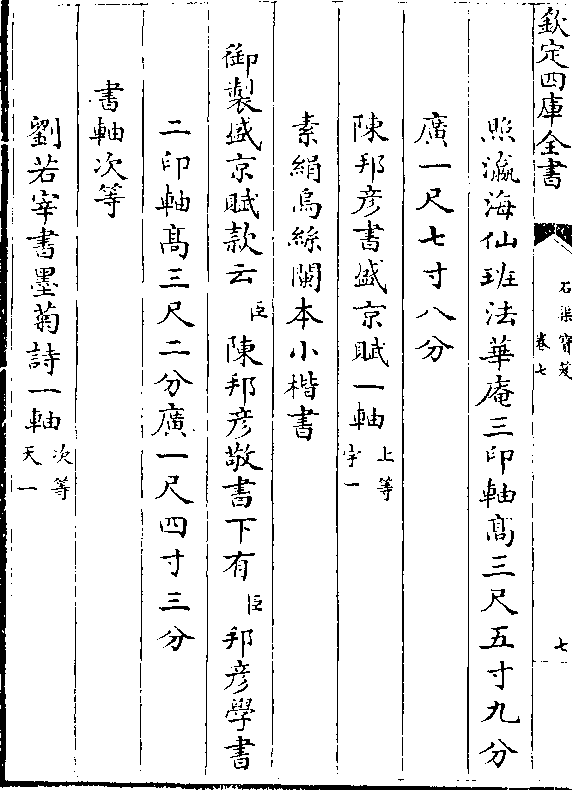 欽定四庫全書
石渠寶笈
卷七
七
照瀛海仙班法華庵三印軸髙三尺五寸九分
廣一尺七寸八分
陳邦彦書盛京賦一軸上等宇一
素絹烏絲闌本小楷書
御製盛京賦款云臣陳邦彦敬書下有臣邦彦學書
二印軸髙三尺二分廣一尺四寸三分
書軸次等
劉若宰書墨菊詩一軸次等天一